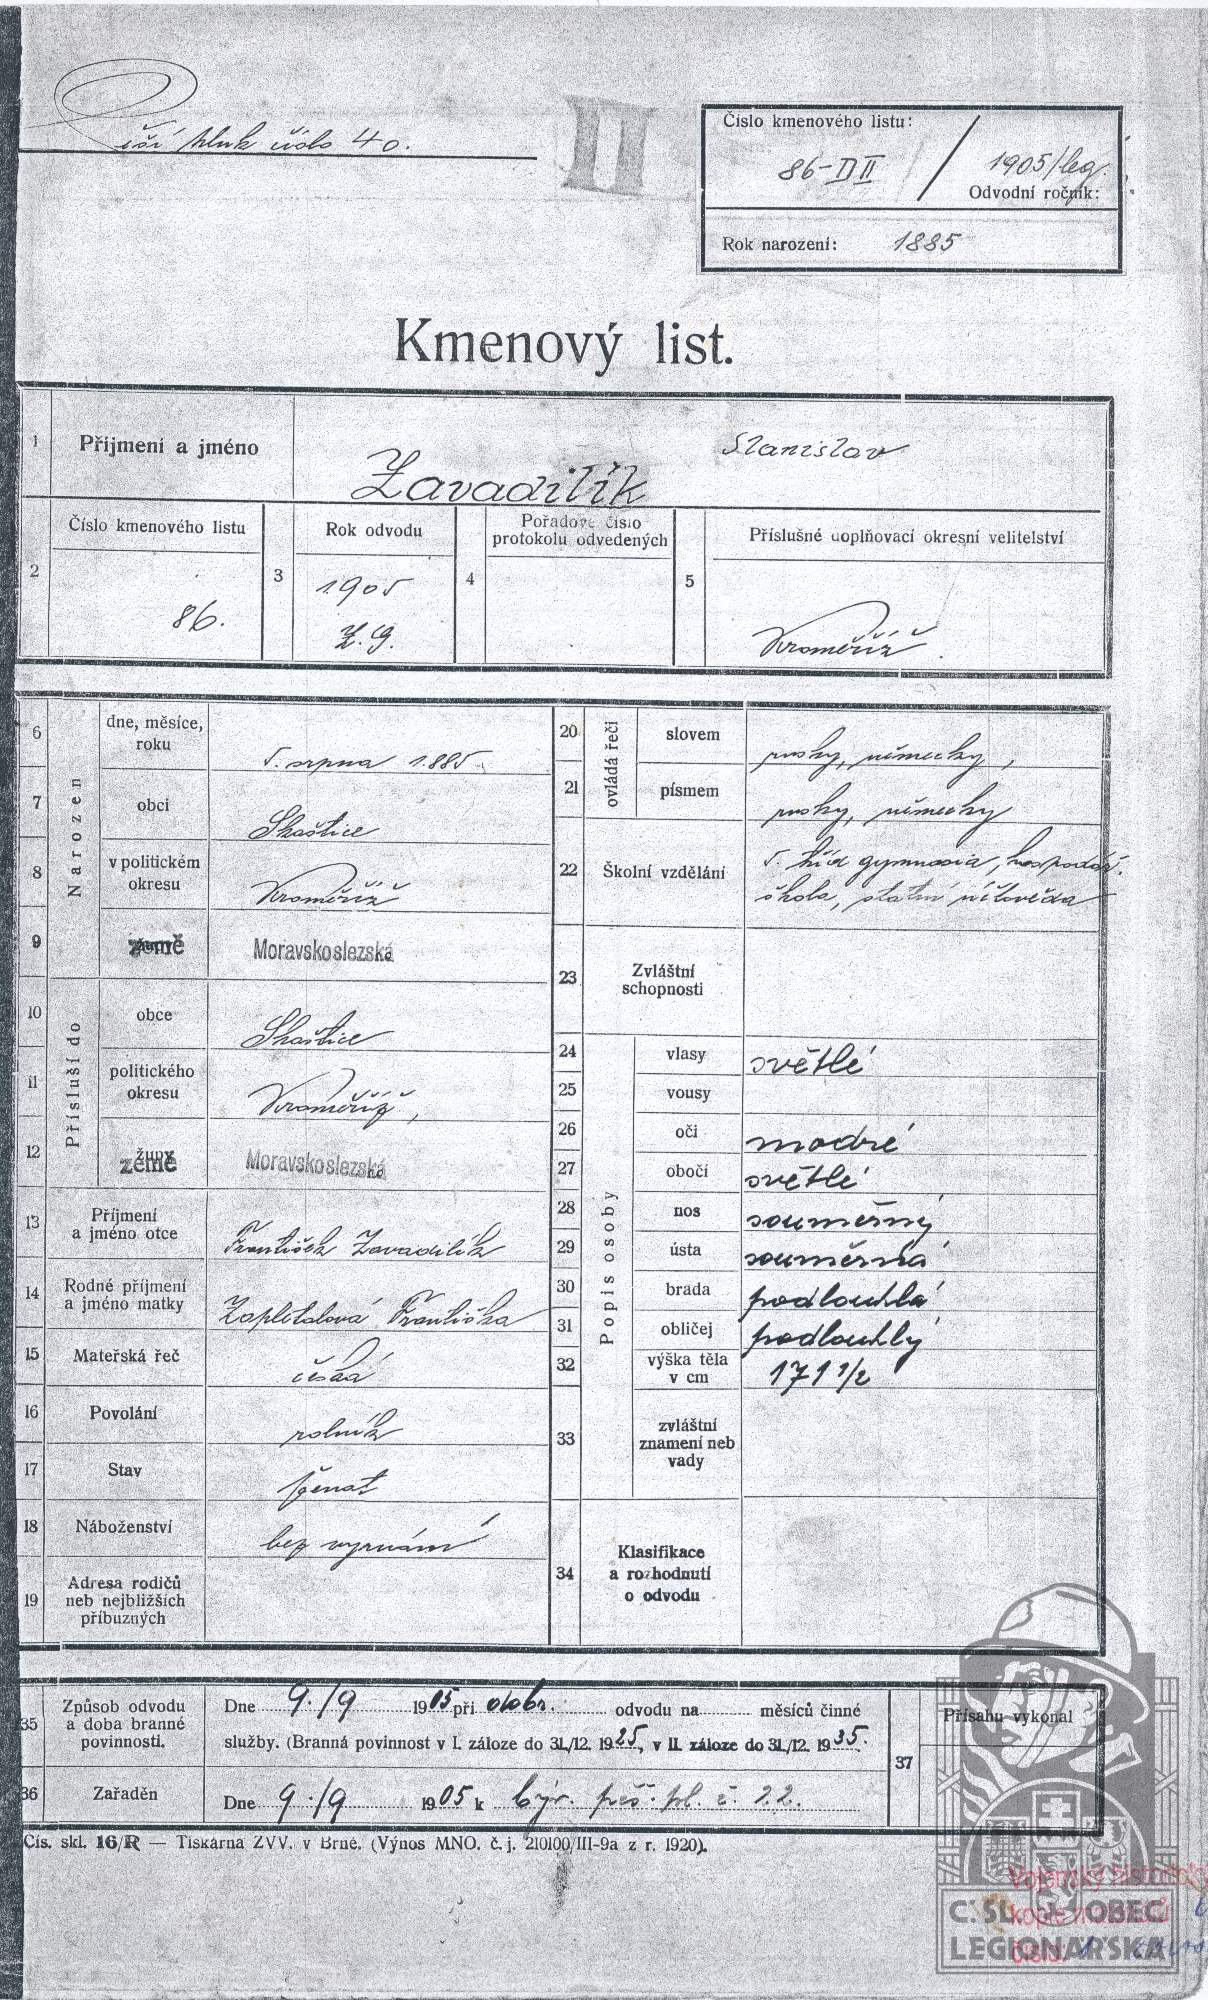 Pěší pluk číslo 40.
II
Číslo kmenového listu:
86-D II / 1905/leg.
Odvodní ročník:
Rok narození: 1885
Kmenový list.
1 Příjmení a jméno Zavadilík Stanislav
2 Číslo kmenového listu 86.
3 Rok odvodu 1905
4 Pořadové číslo protokolu odvedených
5 Příslušné doplňovací okresní velitelství Kroměříž.
Narozen
6 dne, měsíce, roku 5. srpna 1885
7 obci Skaštice
8 v politickém okresu Kroměříž
9 země Moravskoslezská
Přísluší do
10 obce Skaštice
11 politického okresu Kroměříž,
12 župy země Moravskoslezská
13 Příjmení a jméno otce František Zavadilík
14 Rodné příjmení a jméno matky Zapletalová Františka
15 Mateřská řeč česká
16 Povolání rolník
17 Stav ženat
18 Náboženství bez vyznání
19 Adresa rodičů neb nejbližších příbuzných
ovládá řeči
20 slovem rusky, německy,
21 písmem rusky, německy
22 Školní vzdělání 5. tříd gymnasia, hospodář.
škola, státní účtověda
23 Zvláštní schopnosti
Popis osoby
24 vlasy světlé
25 vousy
26 oči modré
27 obočí světlé
28 nos souměrný
29 ústa souměrná
30 brada podlouhlá
31 obličej podlouhlý
32 výška těla v cm 171 1/2
33 zvláštní znamení neb vady
34 Klasifikace a rozhodnutí o odvodu
35 Způsob odvodu a doba branné povinnosti.
Dne 9./9 1905 při dobr. odvodu na měsíců činné
služby. (Branná povinnost v I. záloze do 31./12. 1925, v II. záloze do 31./12. 1935.
36 Zařaděn Dne 9./9 1905 k býv. pěš. pl. č. 22.
37 Přísahu vykonal
Čís. skl. 16/R — Tiskárna ZVV. v Brně. (Výnos MNO. č. j. 210100/III-9a z r. 1920).
Vojenský historický
kopie
číslo:
Č. SL. OBEC
LEGIONÁŘSKÁ